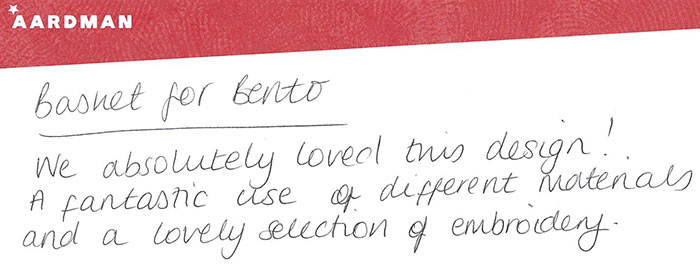 AARDMAN
Basket for Bento
We absolutely loved this design!
A fantastic use of different materials
and a lovely selection of embroidery.